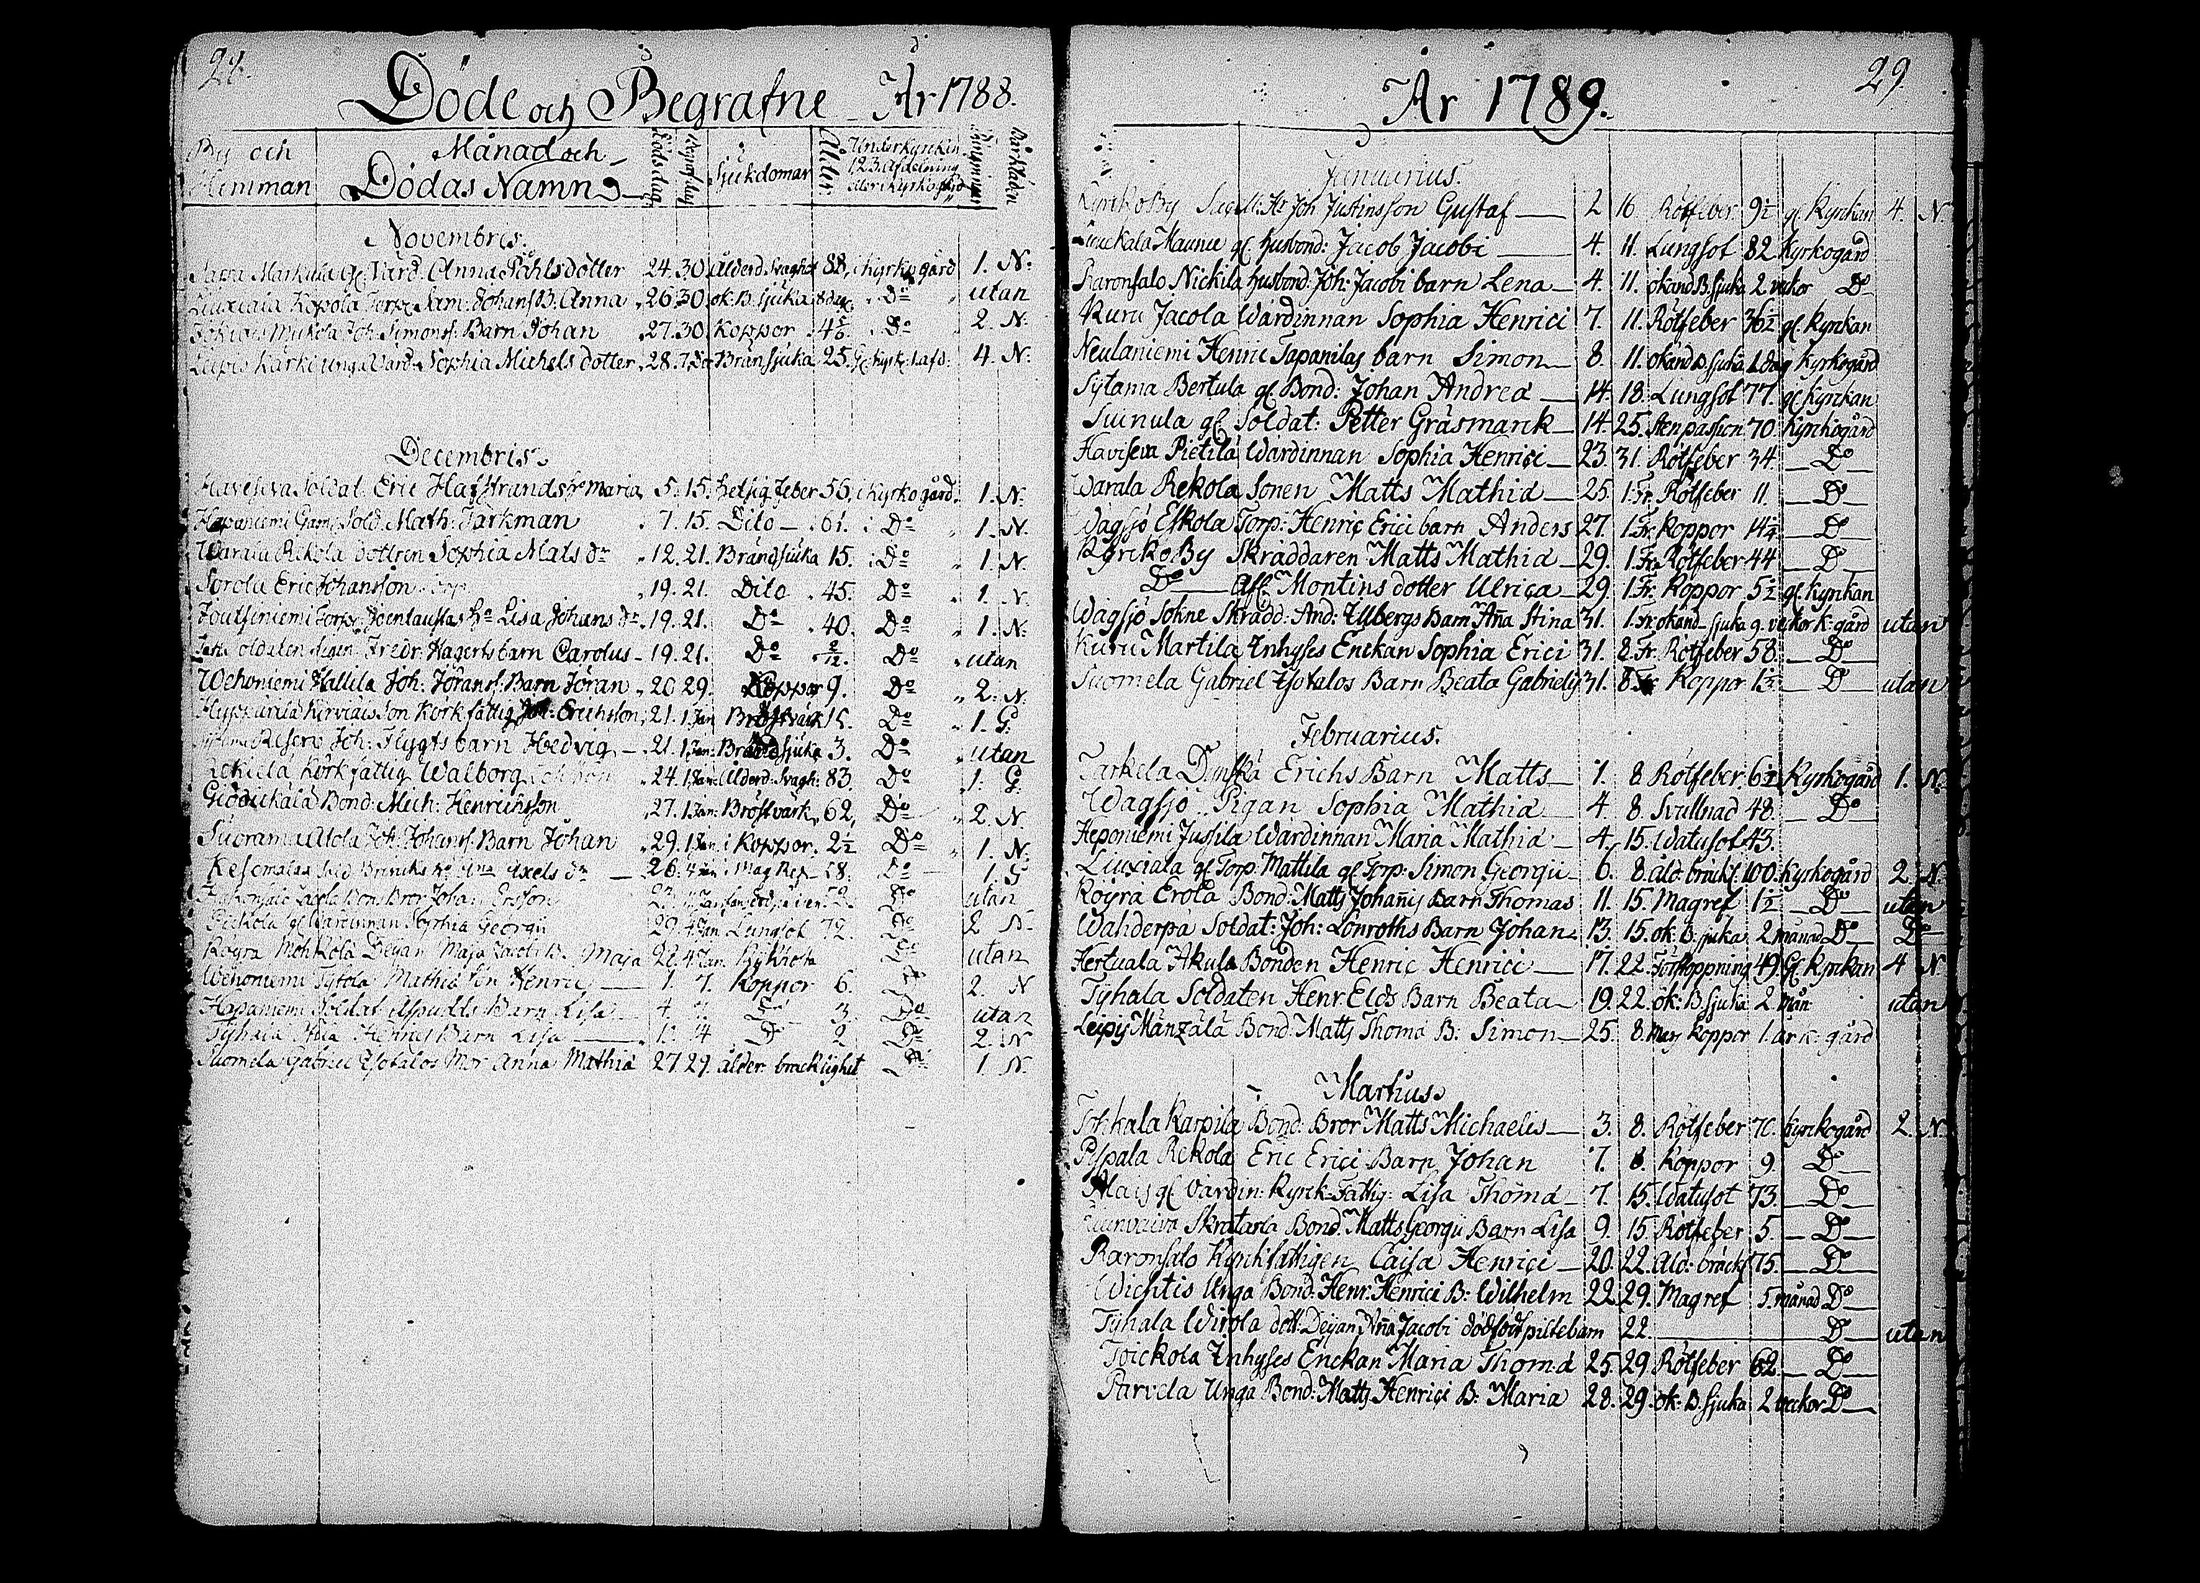 28.
Döde och Begrafne År 1788.
By och Hemman
Månad och Dödas Namn
Dödsdag
Sjukdomar
Ålder
Under kyrkan 1.2.3. Afdelning eller i kyrkogård
Novembris.
Markula gl. Värd. Anna Påhlsdotter 24. 30. Ålderd. Svaghet 88. i kyrkogård 1. N.
Liuxiala Kopola Torp. Sam. Johans B. Anna 26. 30. ok. B. sjuka 8 dag. Do utan
Mickola Joh. Simons: Barn Johan 27. 30. Koppor 4 Do 2. N.
Liepis Karki unga Värd. Sophia Michels dotter 28. 7. Bränsjuka 25. 4. N.
Decembris.
Haviseva Soldat. Eric Hafstrands Maria 5. 15. hetsig feber 56. i kyrkogård. 1. N.
Haponiemi Gam. Sold. Math. Tarkman 7. 15. Dito 61. Do 1. N.
Warala Rekola dottren Sophia Mats dr 12. 21. Brändsjuka 15. Do 1. N.
Sorola Eric Johansson 19. 21. Dito 45. Do 1. N.
Joutseniemi Torp. Lisa Johans dr 19. 21. Do 40. Do 1. N.
Soldaten Fredr. Hagerts barn Carolus 19. 21. Do 2/12. Do utan
Wehoniemi Hallila Joh. Jörans: Barn Jöran 20. 29. Koppor 9. Do 2. N.
Kyrkfattig Joh. Erichsson 21. 1. Jan. Bröstvärk 15. Do 1. G.
Reserv Joh. Flygts barn Hedvig 21. 1. Jan. Brändsjuka 3. Do utan
Kyrkfattig Walborg 24. 1. Jan. Ålderd. Svagh. 83. Do 1. G.
Bond. Mich. Henrichsson 27. 1. Jan. Bröstvärk 62. Do 2. N.
Suorama Joh. Johans: Barn Johan 29. 1. Jan. i Koppor. 2½ Do 1. N.
Axels dr 26. 4. Jan. i Mag Ref 58. Do 1. G
Bror Johan Ersson 23. 52. Do utan
Wärdinnan Sophia Georgii 29. 4. Jan. Lungsot 72. Do 2 N.
Röyrä Mohkola Deijan Maja Jacobi B. Maja 22. 4. Jan. Do utan
Wehoniemi Mathia Son Henric 1. 7. Koppor 6. Do 2. N
Haponiemi Soldat Barn Lisa 4. 7. Do 3. Do utan
Tyhala Henrics Barn Lisa 14 Do 2 Do 2. N
Suomela Gabriel Isotalos Mor Anna Mathiæ 27. 29. ålder bräcklighet Do 1. N.
29.
År 1789.
Januarius.
Kyrko By Joh. Justinsson Gustaf 2 16. Rötfeber. 9½ gl. Kyrkan 4. N.
Liuckala Maunu gl. husbond: Jacob Jacobi 4. 11. Lungsot 82 Kyrkogård
Haronsalo Nickila husbond. Joh. Jacobi barn Lena 4. 11. okänd B. sjuka 2. vekor Do
Kuru Jacola Wärdinnan Sophia Henrici 7. 11. Rötfeber 36½ gl. Kyrkan
Neulaniemi Henric Tapanilas barn Simon 8. 11. okänd B. sjuka 1. dag Kyrkogård
Sytama Bertula gl. Bond: Johan Andreæ 14. 18. Lungsot 77. gl. kyrkan
Suinula gl. Soldat: Petter Gräsmarck 14. 25. Stenpassion 70. Kyrkogård
Haviseva Pietilä Wärdinnan Sophia Henrici 23. 31. Rötfeber 34. Do
Warala Rekola Sonen Matts Mathiæ 25. 1. Fr. Rötfeber 11 Do
Wägsjö Eskola Torp: Henric Erici barn Anders 27. 1. Fr. Koppor 14¼ Do
Kyrko By Skräddaren Matts Mathiæ 29. 1. Fr. Rötfeber 44 Do
Do Aff. Montins dotter Ulrica 29. 1. Fr. Koppor. 5½ gl. Kyrkan
Wägsjö Sokne Skrädd: And: Ullbergs Barn Aña Stina 31. 1. Fr. okänd sjuka 9. vekor K. gård utan
Kuru Martila Inhyses Enckan Sophia Erici 31. 8. Fr. Rötfeber 58. Do
Suomela Gabriel Isotalos Barn Beata Gabrielis 31. 8. Fr Koppor 1 Do utan
Februarius.
Tarkela Erichs Barn Matts 1. 8. Rötfeber. 6½ Kyrkogård 1. N.
Wägsjö Pigan Sophia Mathiæ 4. 8. Svullnad 48. Do
Heponiemi Jusila Wärdinnan Maria Mathiæ 4. 15. Watusot 43.
Liuxiala gl. Torp. Mattila gl. Torp: Simon Georgii 6. 8. åld. bräckl. 100. Kyrkogård 2. N.
Röyrä Erola Bond: Matts Johañis Barn Thomas 11. 15. Magref 1½ Do utan
Wahderpä Soldat: Joh: Lönroths Barn Johan 13. 15. ok. B. sjuka 2 månad Do Do
Kertuala Akula Bonden Henric Henrici 17. 22. 49. Gl. Kyrkan 4 N
Tyhala Soldaten Henr. Elds Barn Beata 19. 22. ok: B. sjuka 2 mån utan
Leipis Mänzälä Bond: Matts Thomæ B: Simon 25. 8. Mars Koppor 1. år K: gård
Martius.
Tohkala Karpila Bond: Bror Matts Michaelis 3. 8. Rötfeber 70. Kyrkogård 2. N.
Pispala Rekola Eric Erici Barn Johan 7. 8. Koppor 9. Do
Mais gl. Värdin: Kyrck-Fattig: Lisa Thomæ 7. 15. Watusot 73. Do
Skratarla Bond. Matts Georgii Barn Lisa 9. 15. Rötfeber 5. Do
Haronsalo Kyrckfattigen Caisa Henrici 20. 22. åld: bräckl 75. Do
Wichtis Unga Bond: Henr. Henrici B: Wilhelm 22 29. Magref 5. månad Do
Tyhala Wirola dott. Deijan Aña Jacobi dödfödt piltebarn 22. Do utan
Toickola Inhyses Enckan Maria Thomæ 25. 29 Rötfeber 62. Do
Parvela Unga Bond: Matts Henrici B: Maria 28. 29. ok: B. sjuka 2 veckor Do